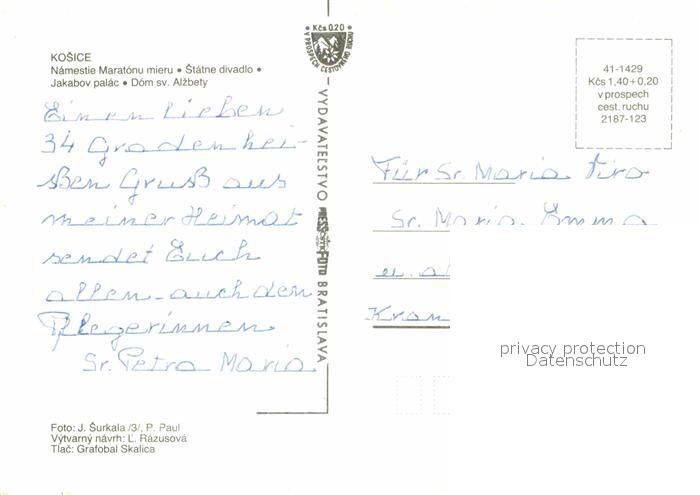 KOŠICE
Námestie Maratónu mieru • Štátne divadlo •
Jakabov palác • Dóm sv. Alžbety
Einen lieben
34 Graden hei-
ßen Gruß aus
meiner Heimat
sendet Euch
allen auch den
Pflegerinnen
Sr. Petra Maria
Foto: J. Šurkala /3/, P. Paul
Výtvarný návrh: Ľ. Rázusová
Tlač: Grafobal Skalica
• Kčs 0.20 •
V PROSPECH CESTOVNÉHO RUCHU
VYDAVATEĽSTVO PRESSFOTO BRATISLAVA
41-1429
Kčs 1,40+0,20
v prospech
cest. ruchu
2187-123
Für Sr. Maria
Sr. Maria Emma
u. al
Kran
privacy protection
Datenschutz